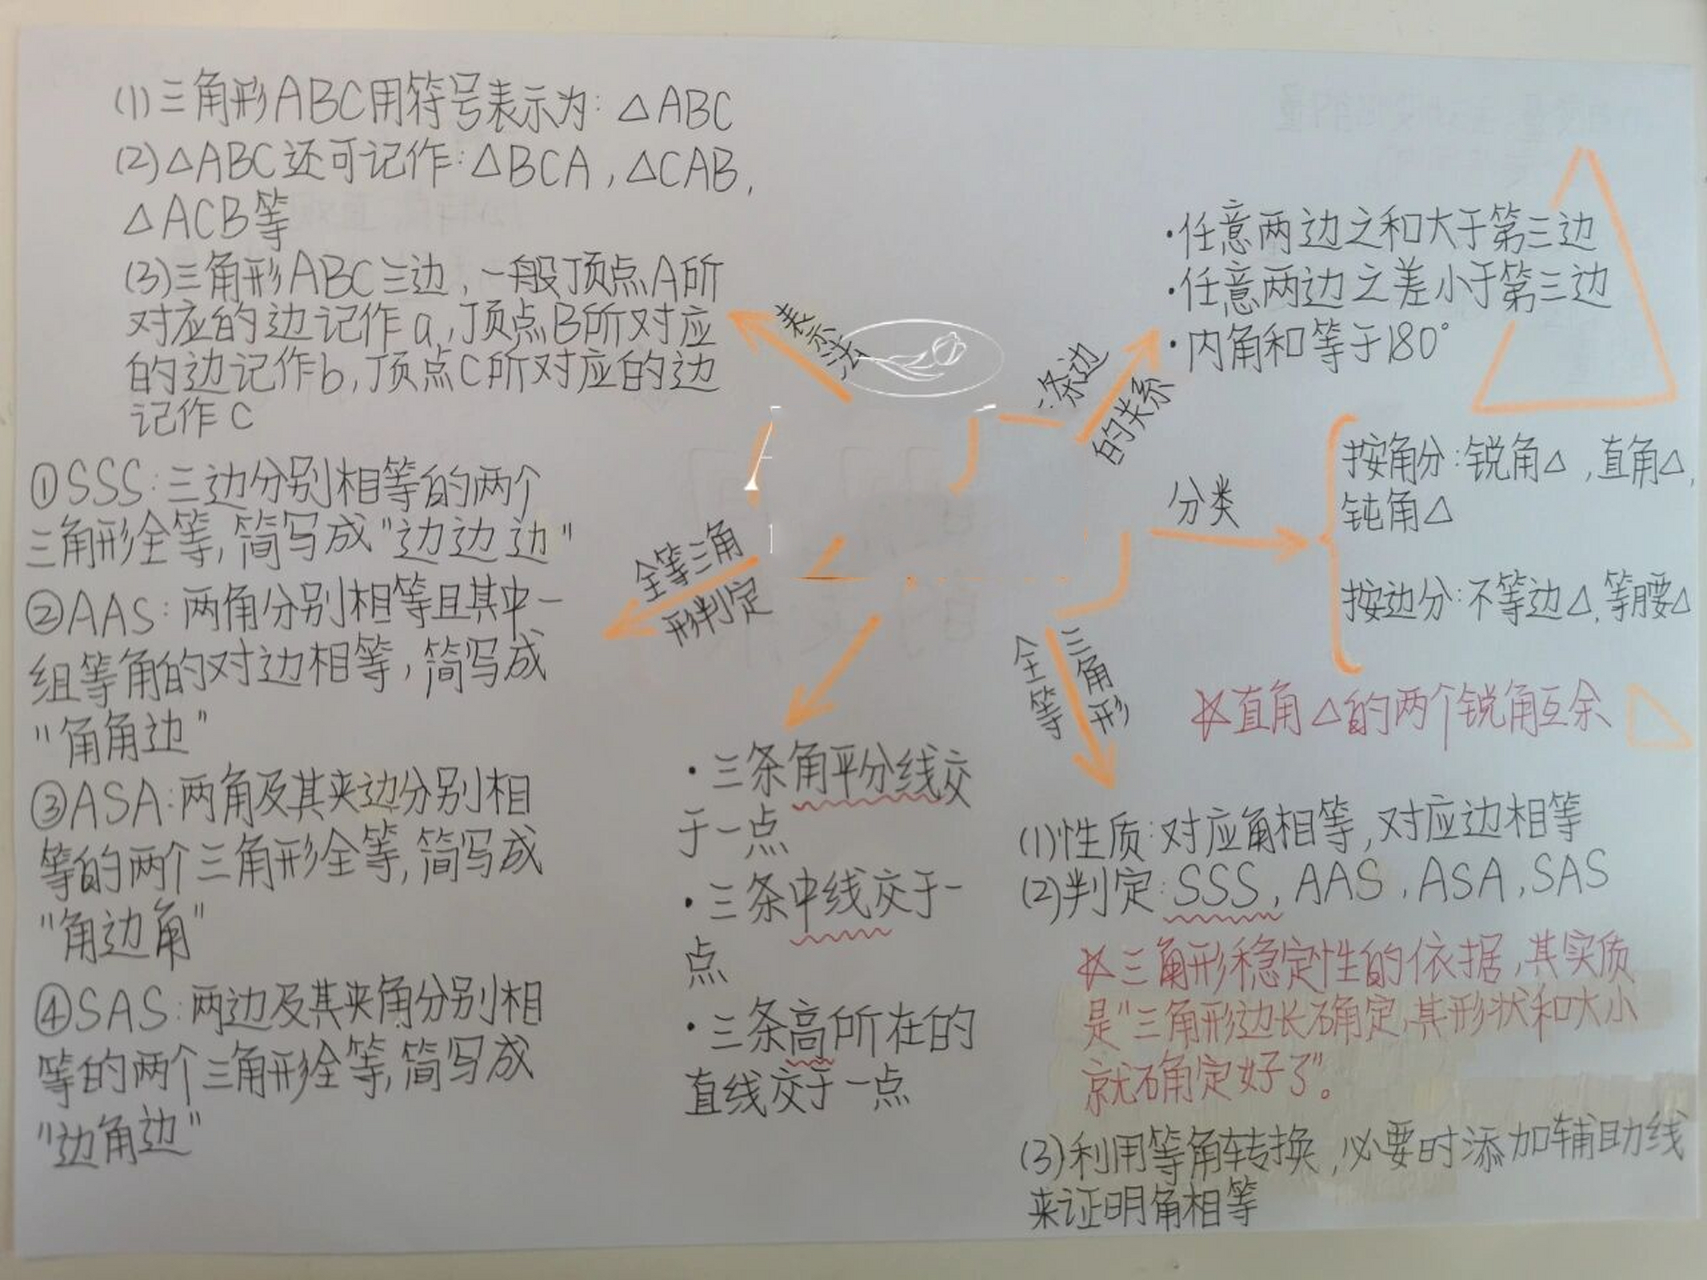 (1)三角形ABC用符号表示为:△ABC
(2)△ABC还可记作:△BCA,△CAB,
△ACB等
(3)三角形ABC三边,一般顶点A所
对应的边记作a,顶点B所对应
的边记作b,顶点C所对应的边
记作c
表示法
条边
的关系
·任意两边之和大于第三边
·任意两边之差小于第三边
·内角和等于180°
分类
按角分:锐角△,直角△,
钝角△
按边分:不等边△,等腰△
直角△的两个锐角互余
全等三角
形判定
①SSS:三边分别相等的两个
三角形全等,简写成"边边边"
②AAS:两角分别相等且其中一
组等角的对边相等,简写成
"角角边"
③ASA:两角及其夹边分别相
等的两个三角形全等,简写成
"角边角"
④SAS:两边及其夹角分别相
等的两个三角形全等,简写成
"边角边"
·三条角平分线交
于一点
·三条中线交于一
点
·三条高所在的
直线交于一点
全等
三角形
(1)性质:对应角相等,对应边相等
(2)判定:SSS,AAS,ASA,SAS
三角形稳定性的依据,其实质
是"三角形边长确定,其形状和大小
就确定好了"。
(3)利用等角转换,必要时添加辅助线
来证明角相等